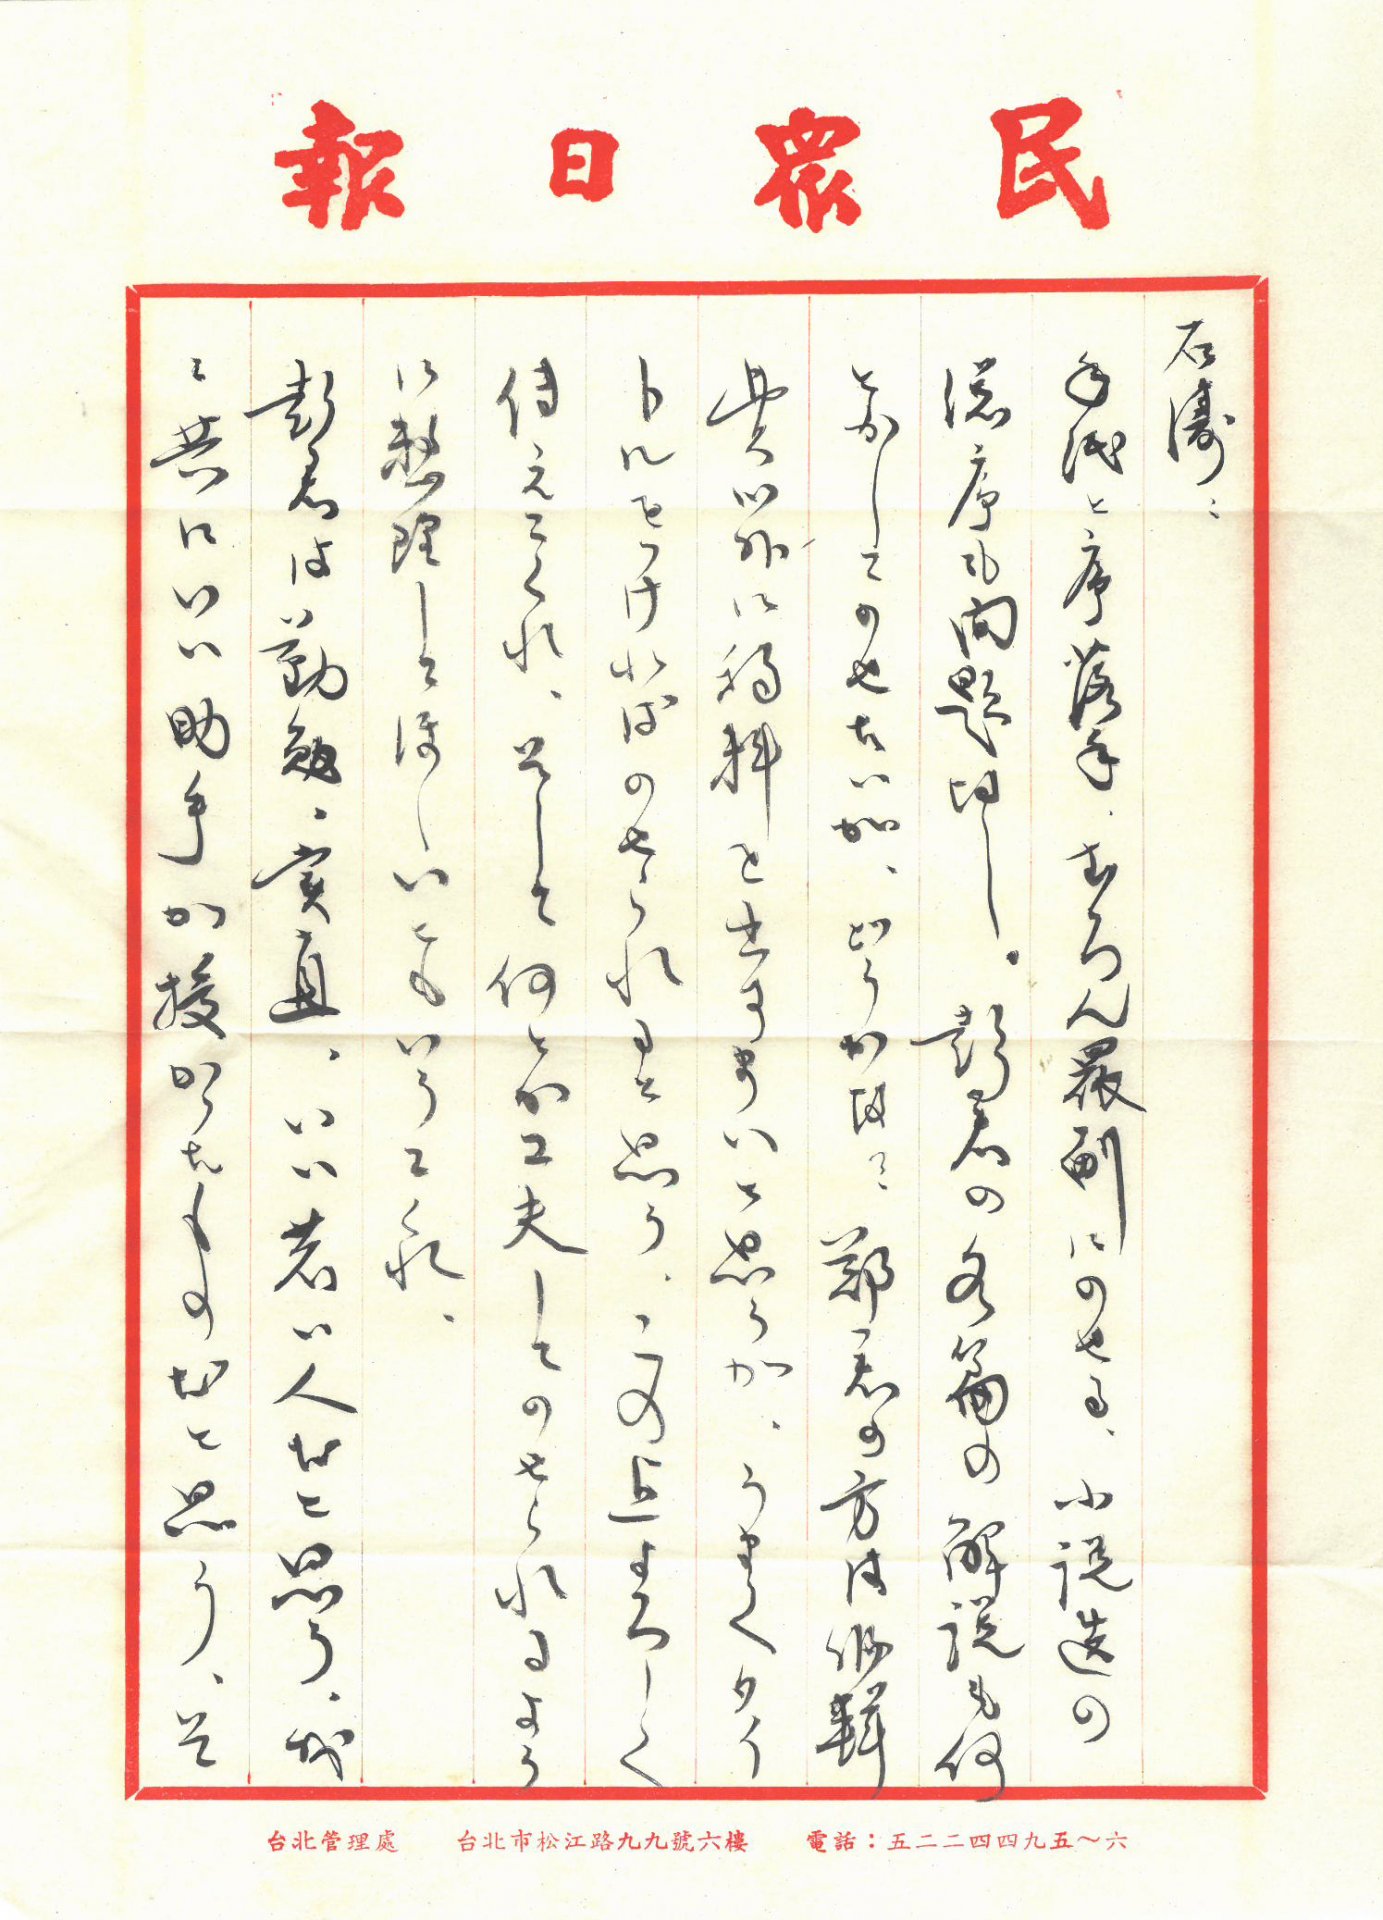 民眾日報
石濤：
手紙と序落手、むろん最副にのせる、小説選の
總序も問題なし。彭君の各篇の解説も何
とかしてのせたいが、どうかな？鄭君の方は編輯
費以外に稿料と出すまいと思うが、うまくタイ
トルをつければのせられると思う、この点よろしく
伝えてくれ、そして何とか工夫してのせられるよう
に整理してほしいともいうてくれ、
彭君は勤勉、實直、いい若い人だと思う、が
と共にいい助手が授かったものだと思う、そ
台北管理處 台北市松江路九九號六樓 電話：五二二四四九五～六